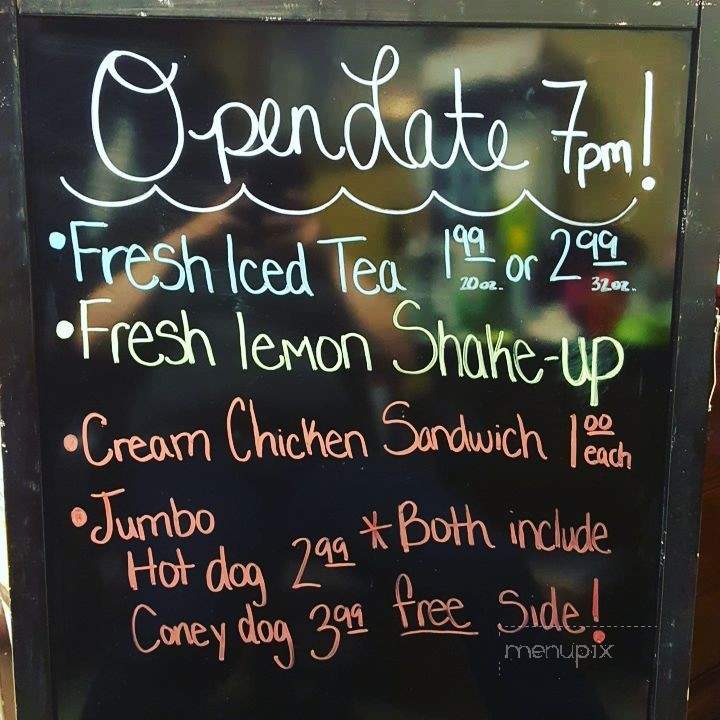 Open Late 7pm!
• Fresh Iced Tea 1.99 20 oz. or 2.99 32 oz.
• Fresh lemon Shake-up
• Cream Chicken Sandwich 1.00 each
• Jumbo
Hot dog 2.99 * Both include
Coney dog 3.99 free Side!
menupix